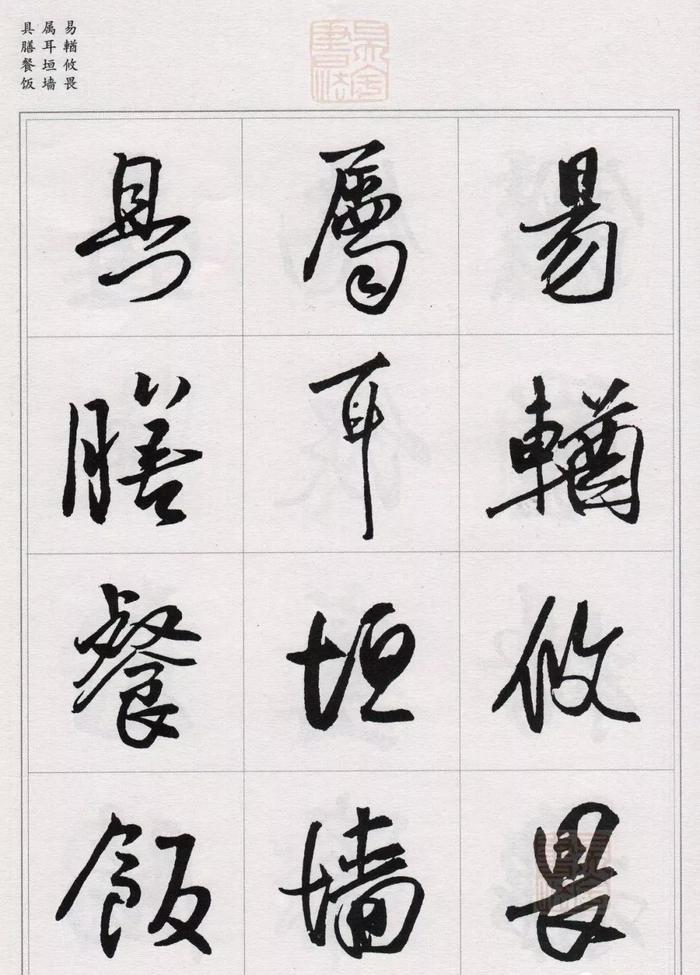 易輶攸畏
属耳垣墙
具膳餐饭
易輶攸畏
屬耳垣墙
具膳餐飯